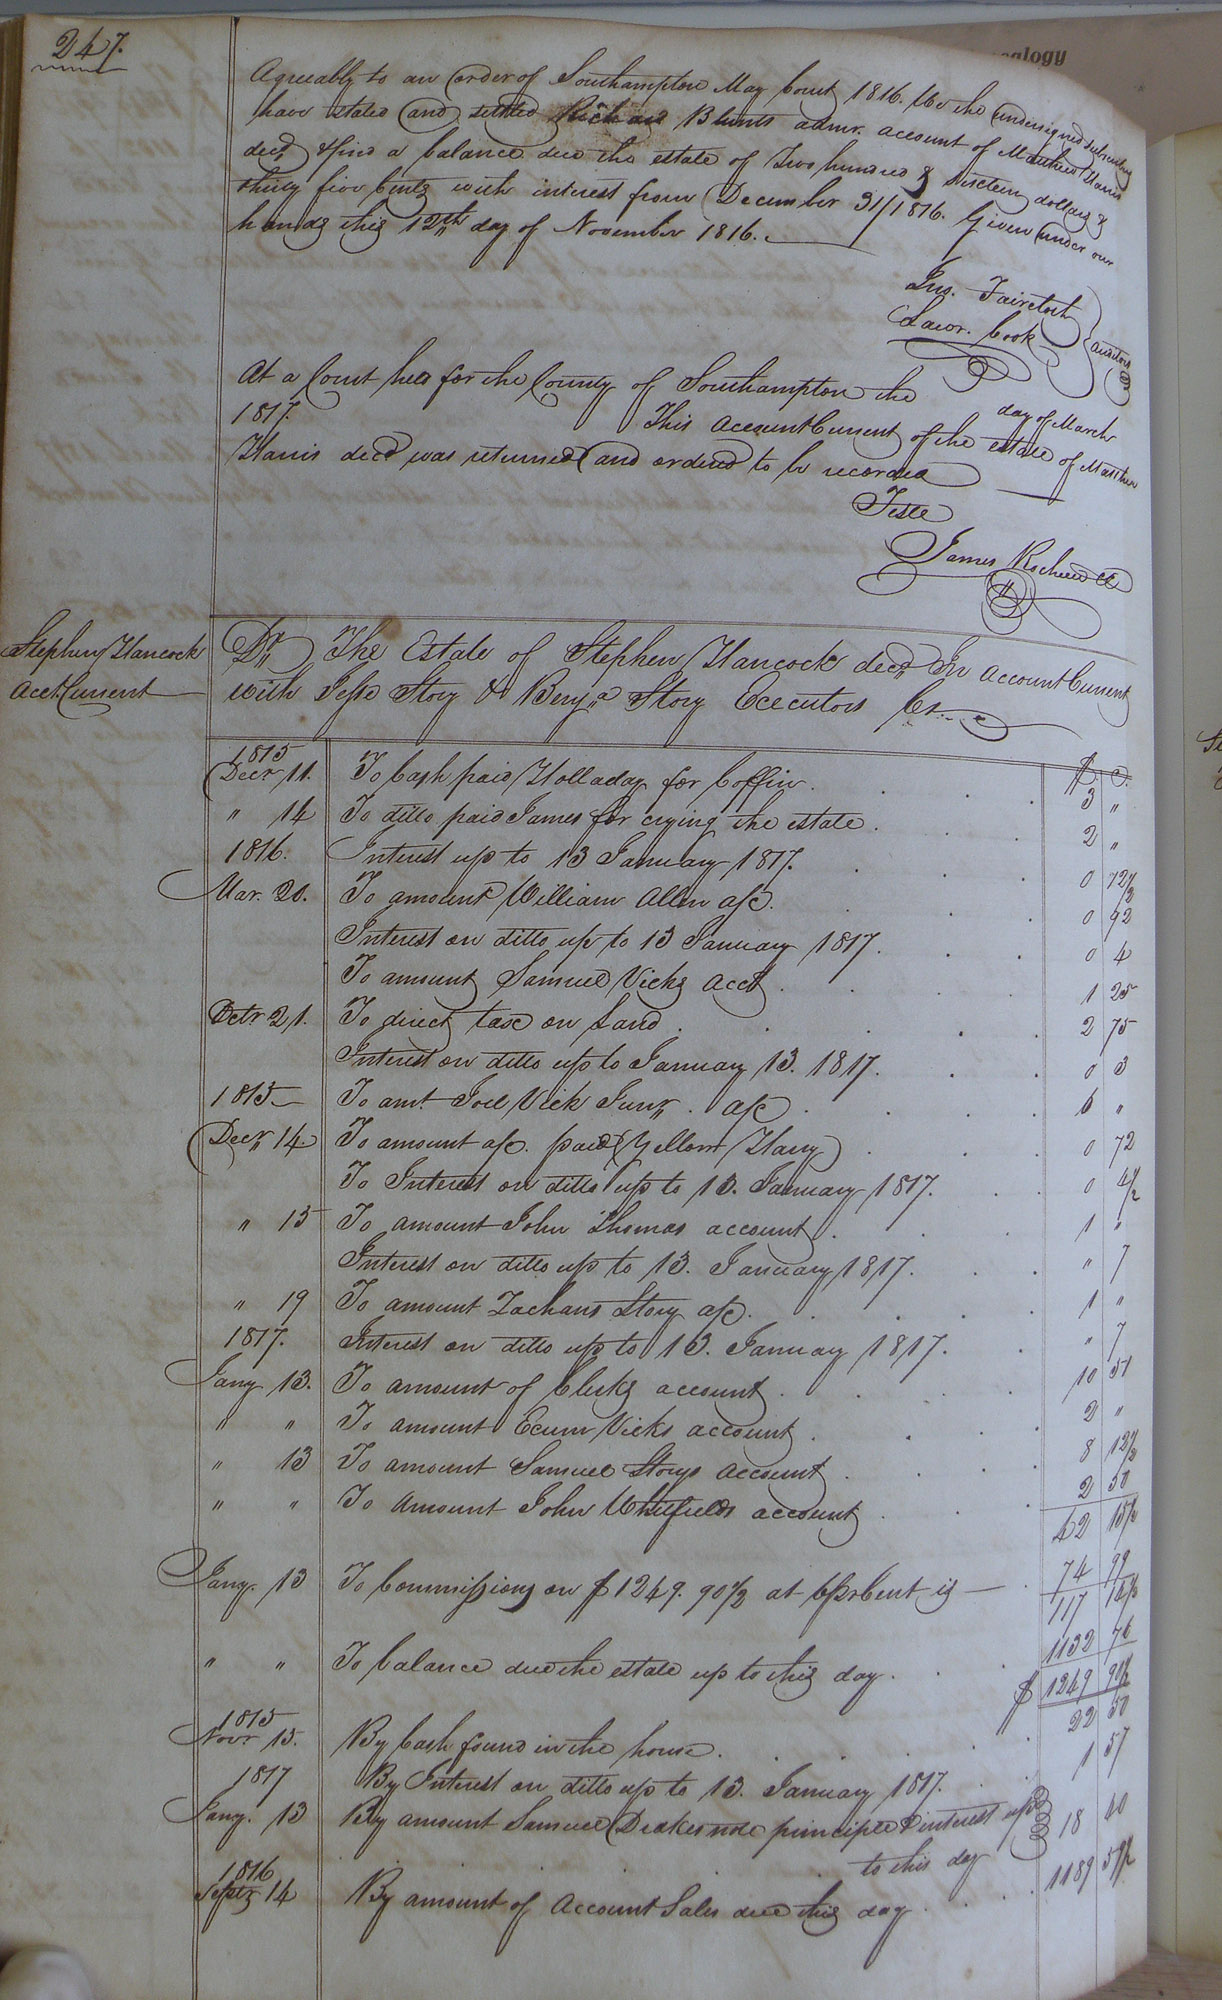 247.
alogy
Agreeably to an order of Southampton May Court 1816. We the undersigned
have stated and settled Richard Blunts admr. account of Matthew Harris
decd. & find a balance due the estate of Two hundred & Sixteen dollars &
thirty five Cents with interest from December 31/1816. Given under our
hands this 12th day of November 1816.
Jno. Faircloth
Lawr. Cook
auditors
At a Court held for the County of Southampton the day of March
1817. This Account Current of the estate of Matthew
Harris decd was returned and ordered to be recorded
Teste
James Rochelle CC
Stephen Hancock
Acct. Current
Dr. The Estate of Stephen Hancock decd. In Account Current
with Jesse Story & Benja. Story Executors Cr.
$ C.
1815
Decr. 11. To Cash paid Holladay for Coffin 3 "
" 14 To ditto paid James for crying the estate 2 "
1816. Interest up to 13 January 1817. 0 12½
Mar. 20. To amount William Allen a/c. 0 92
Interest on ditto up to 13 January 1817. 0 4
To amount Samuel Vicks Acct 1 25
Octr 21. To direct tax on Land 2 75
Interest on ditto up to January 13. 1817. 0 3
1815 To amt. Joel Vick Junr. a/c 6 "
Decr. 14. To amount a/c. paid Yellow Harry 0 72
To Interest on ditto up to 13. January 1817. 0 4½
" 15 To amount John Thomas account 1 "
Interest on ditto up to 13. January 1817. " 7
" 19 To amount Zacharis Story a/c. 1 "
1817. Interest on ditto up to 13. January 1817. " 7
Jany 13. To amount of Clerks account 10 51
" " To amount Exum Vicks account 2 "
" 13 To amount Samuel Storys account 8 12½
" " To Amount John Whitfields account 2 50
42 15½
Jany. 13 To Commissions on $1249. 90½ at 6 pr Cent is 74 99
117 14½
" " To balance due the estate up to this day. 1132 76
$ 1249 90½
1815
Novr 15. By Cash found in the house. 22 50
1817 By Interest on ditto up to 13. January 1817. 1 57
Jany. 13 By amount Samuel Drakes note principle & interest up
to this day 18 40
1816
Septr 14 By amount of Account Sales due this day 1189 59½